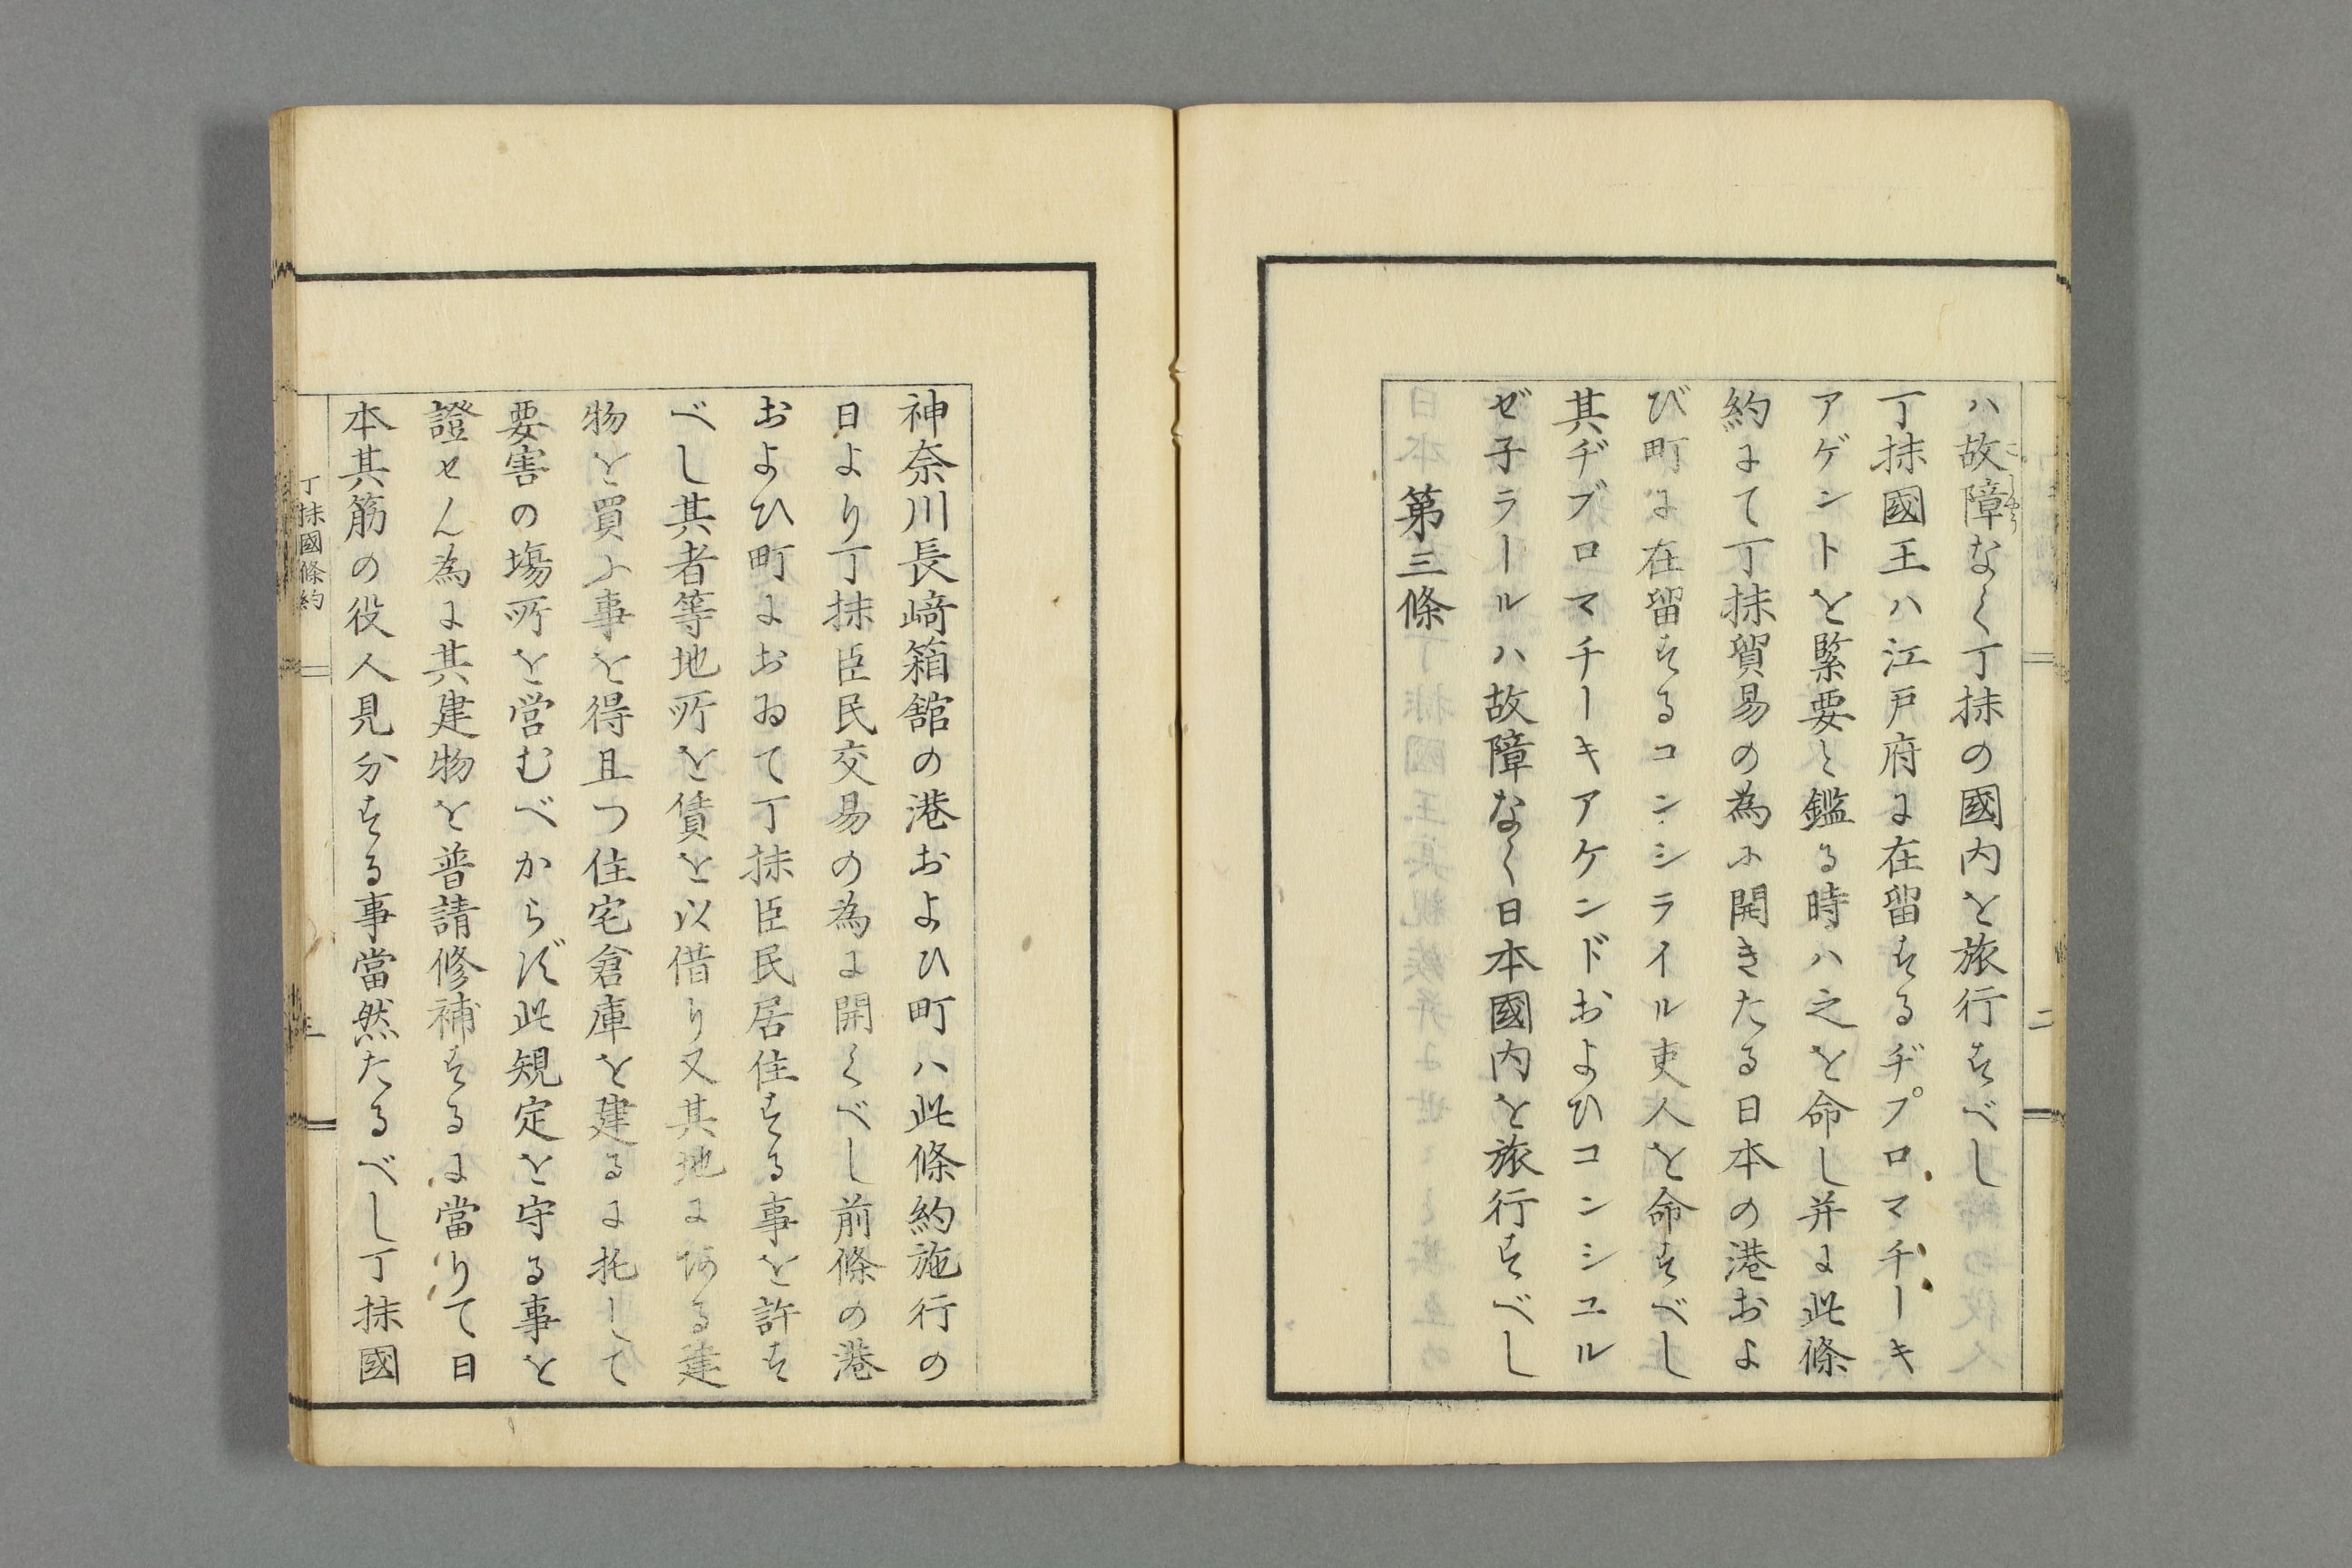 ハ故障なく丁抹の國内を旅行すべし
丁抹國王ハ江戸府に在留するヂプロマチーキ
アゲントを緊要と鑑る時ハ之を命し并に此條
約にて丁抹貿易の為に開きたる日本の港およ
び町に在留するコンシライル吏人を命すべし
其ヂブロマチーキアケンドおよひコンシユル
ゼ子ラールハ故障なく日本國内を旅行すべし
第三條
二
神奈川長﨑箱舘の港およひ町ハ此條約施行の
日より丁抹臣民交易の為に開くべし前條の港
およひ町におゐて丁抹臣民居住する事を許す
べし其者等地所を賃を以借り又其地に阿る建
物を買ふ事を得且つ住宅倉庫を建るに托して
要害の塲所を営むべからず此規定を守る事を
證せん為に其建物を普請修補するに當りて日
本其筋の役人見分する事當然たるべし丁抹國
丁抹國條約
三